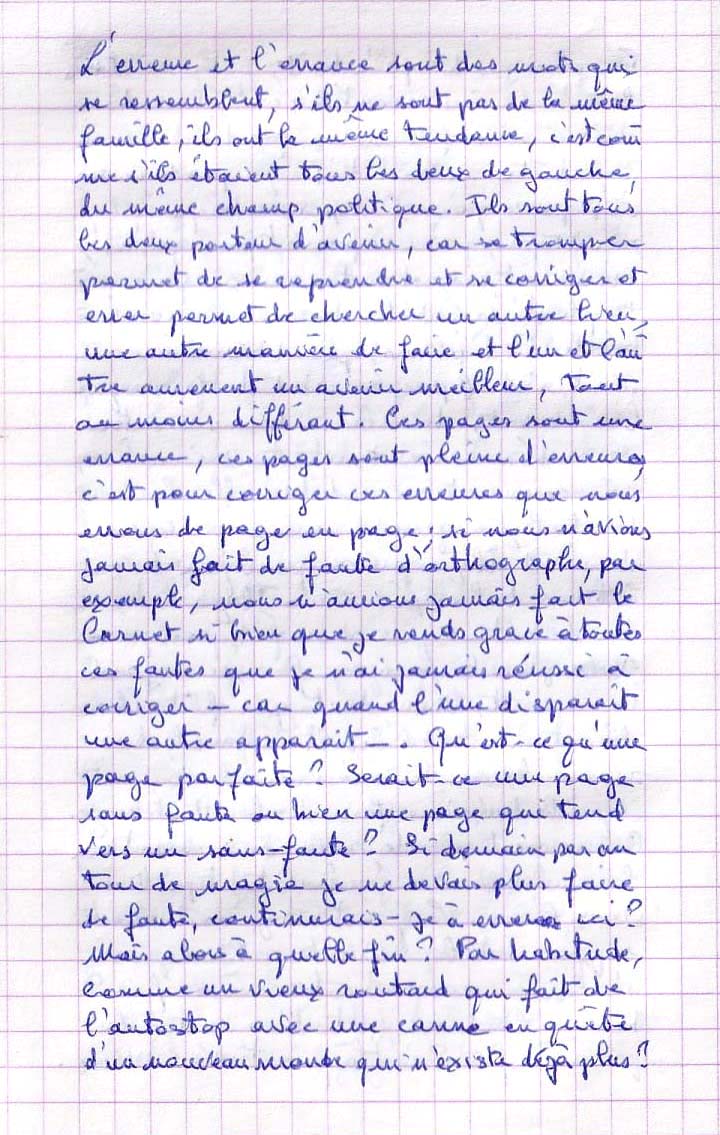 L'erreur et l'errance sont des mots qui
se ressemblent, s'ils ne sont pas de la même
famille, ils ont la même tendance, c'est com
me s'ils étaient tous les deux de gauche,
du même champ politique. Ils sont tous
les deux porteur d'avenir, car se tromper
permet de se reprendre et se corriger et
errer permet de chercher un autre lieu,
une autre manière de faire et l'un et l'au
tre amènent un avenir meilleur, tout
au moins différant. Ces pages sont une
errance, ces pages sont pleine d'erreurs,
c'est pour corriger ces erreures que nous
errons de page en page; si nous n'avions
jamais fait de faute d'orthographe, par
exemple, nous n'aurions jamais fait le
Carnet si bien que je rends grace à toutes
ces fautes que je n'ai jamais réussi à
corriger – car quand l'une disparait
une autre apparait –. Qu'est-ce qu'une
page parfaite? Serait-ce une page
sans faute ou bien une page qui tend
vers un sans-faute? Si demain par un
tour de magie je ne devais plus faire
de faute, continurais-je à errer ici?
Mais alors à quelle fin? Par habitude,
comme un vieux routard qui fait de
l'autostop avec une canne en quête
d'un nouveau monde qui n'existe déjà plus?